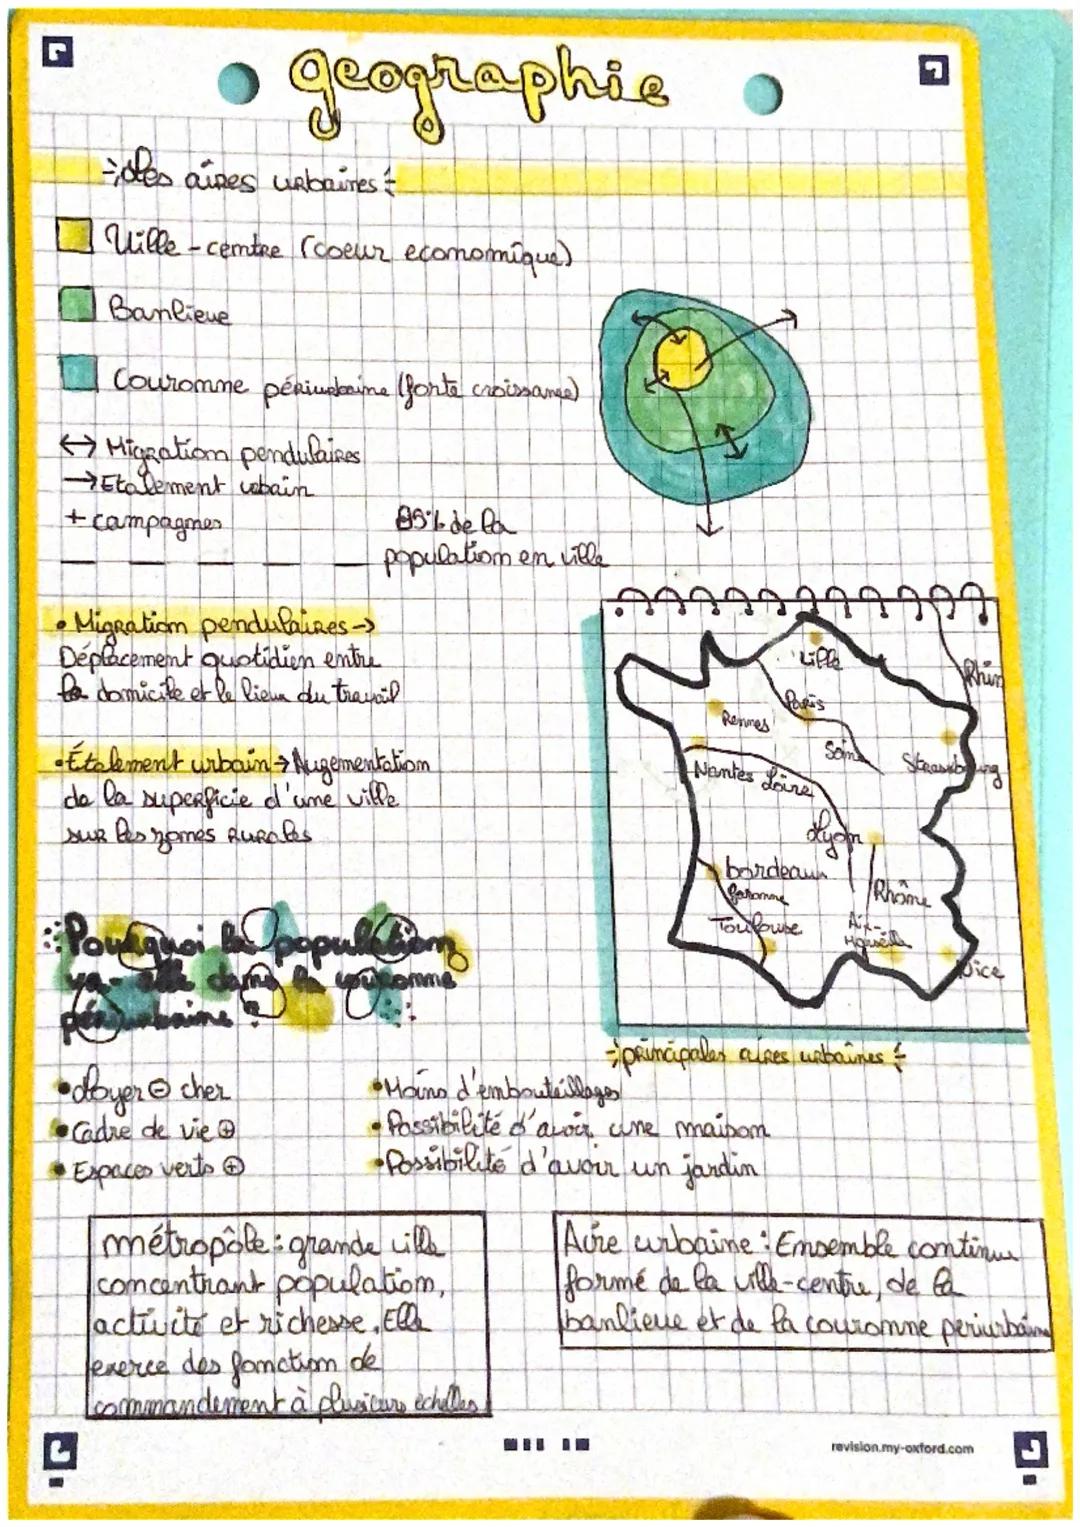 geographie
Les aires urbaines
Ville-centre (coeur economique)
Banlieue
Couronne périurbaine (forte croissance)
↔ Migration pendulaires
→ Etalement urbain
+ campagnes
85% de la
population en ville
• Migration pendulaires →
Déplacement quotidien entre
le domicile et le lieu du travail
• Étalement urbain → Augementation
de la superficie d'une ville
sur les zones rurales
Lille
Rhin
Paris
Rennes
Seine
Strasbourg
Nantes Loire
Lyon
bordeaux
garonne
Rhône
Toulouse
Aix-
Marseille
Nice
principales aires urbaines
Pourquoi la population
va-elle dans la couronne
périurbaine ?
• Loyer ⊖ cher
• Cadre de vie ⊕
• Espaces verts ⊕
• Moins d'embouteillages
• Possibilité d'avoir une maison
• Possibilité d'avoir un jardin
métropôle : grande ville
concentrant population,
activité et richesse. Elle
exerce des fonction de
commandement à plusieurs échelles
Aire urbaine : Ensemble continu
formé de la ville-centre, de la
banlieue et de la couronne periurbaine
revision.my-oxford.com